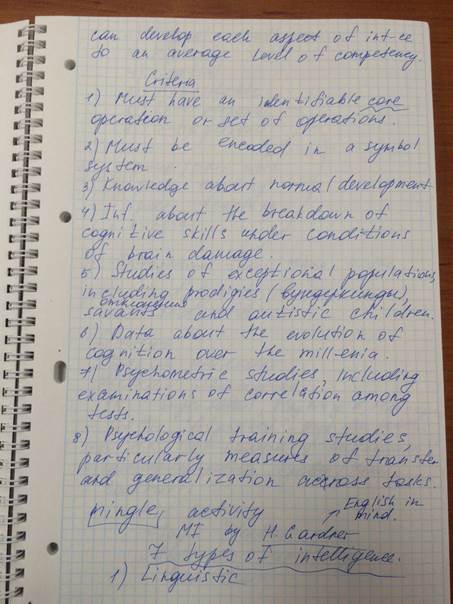 can develop each aspect of int-ce
to an average level of competency.
Criteria
1) Must have an identifiable core
operation or set of operations.
2) Must be encoded in a symbol
system.
3) Knowledge about normal development
4) Inf. about the breakdown of
cognitive skills under conditions
of brain damage.
5) Studies of exceptional populations,
including prodigies (вундеркинды),
savants and autistic children.
6) Data about the evolution of
cognition over the millenia.
7) Psychometric studies, including
examinations of correlation among
tests.
8) Psychological training studies,
particularly measures of transfer
and generalization across tasks.
mingle activity
English in
mind.
MI by H. Gardner
7 types of intelligence.
1) Linguistic